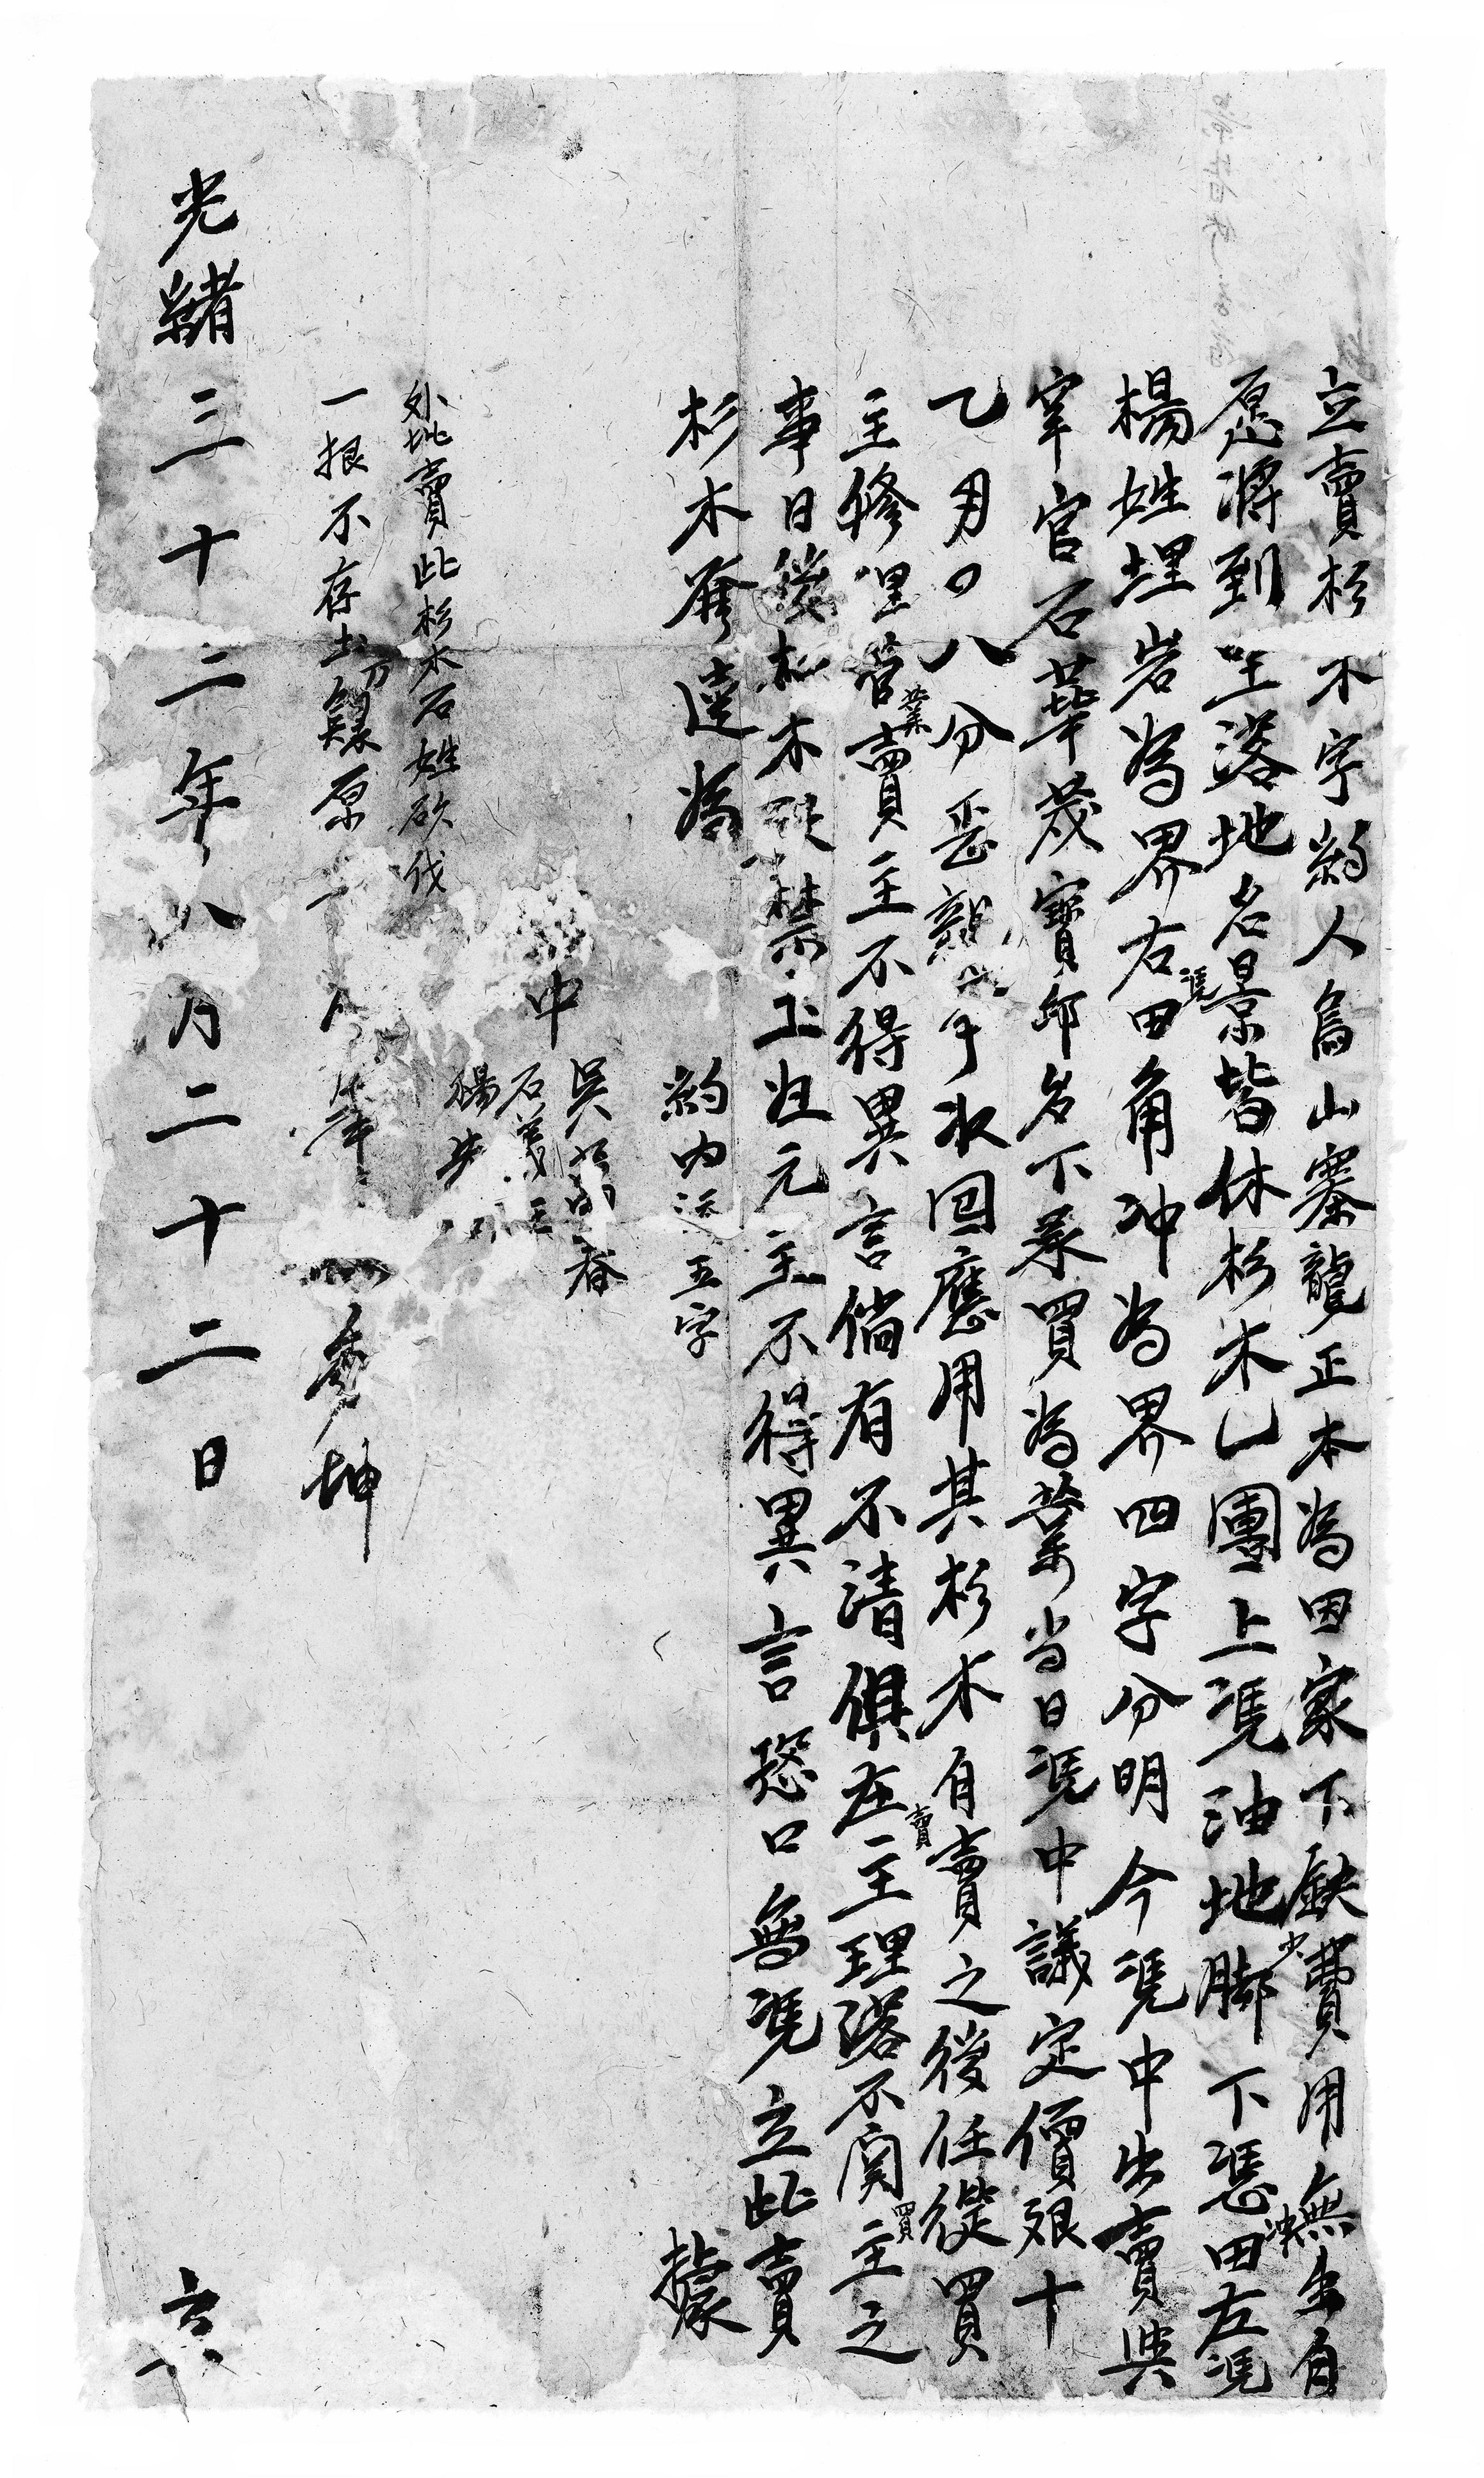 立賣杉木字約人烏山寨龍正本為因家下缺少費用無出自
愿將到坐落地名景皆休杉木乙團上凴油地脚下憑田冲左凴
楊姓埋岩為界右凴田角冲為界四字分明今凴中出賣與
宰官石華茂寶邱名下承買為業当日凴中議定價銀十
乙両〇八分正親手收回應用其杉木自賣之後任從買
主修理管業賣主不得異言倘有不清俱在賣主理落不関買主之
事日後杉木砍禁土歸元主不得異言恐口無凴立此賣
杉木 遠為據
約內添五字
中
吳 春
石 三
楊
外批賣此杉木石姓砍伐
一根不存土 原
筆 秀坤
光緒三十二年八月二十二日 立